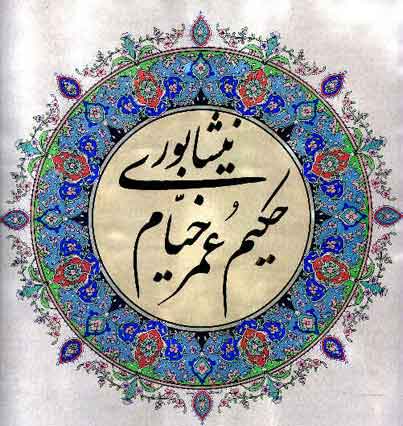 حکیم عُمر خیّام
نیشابوری